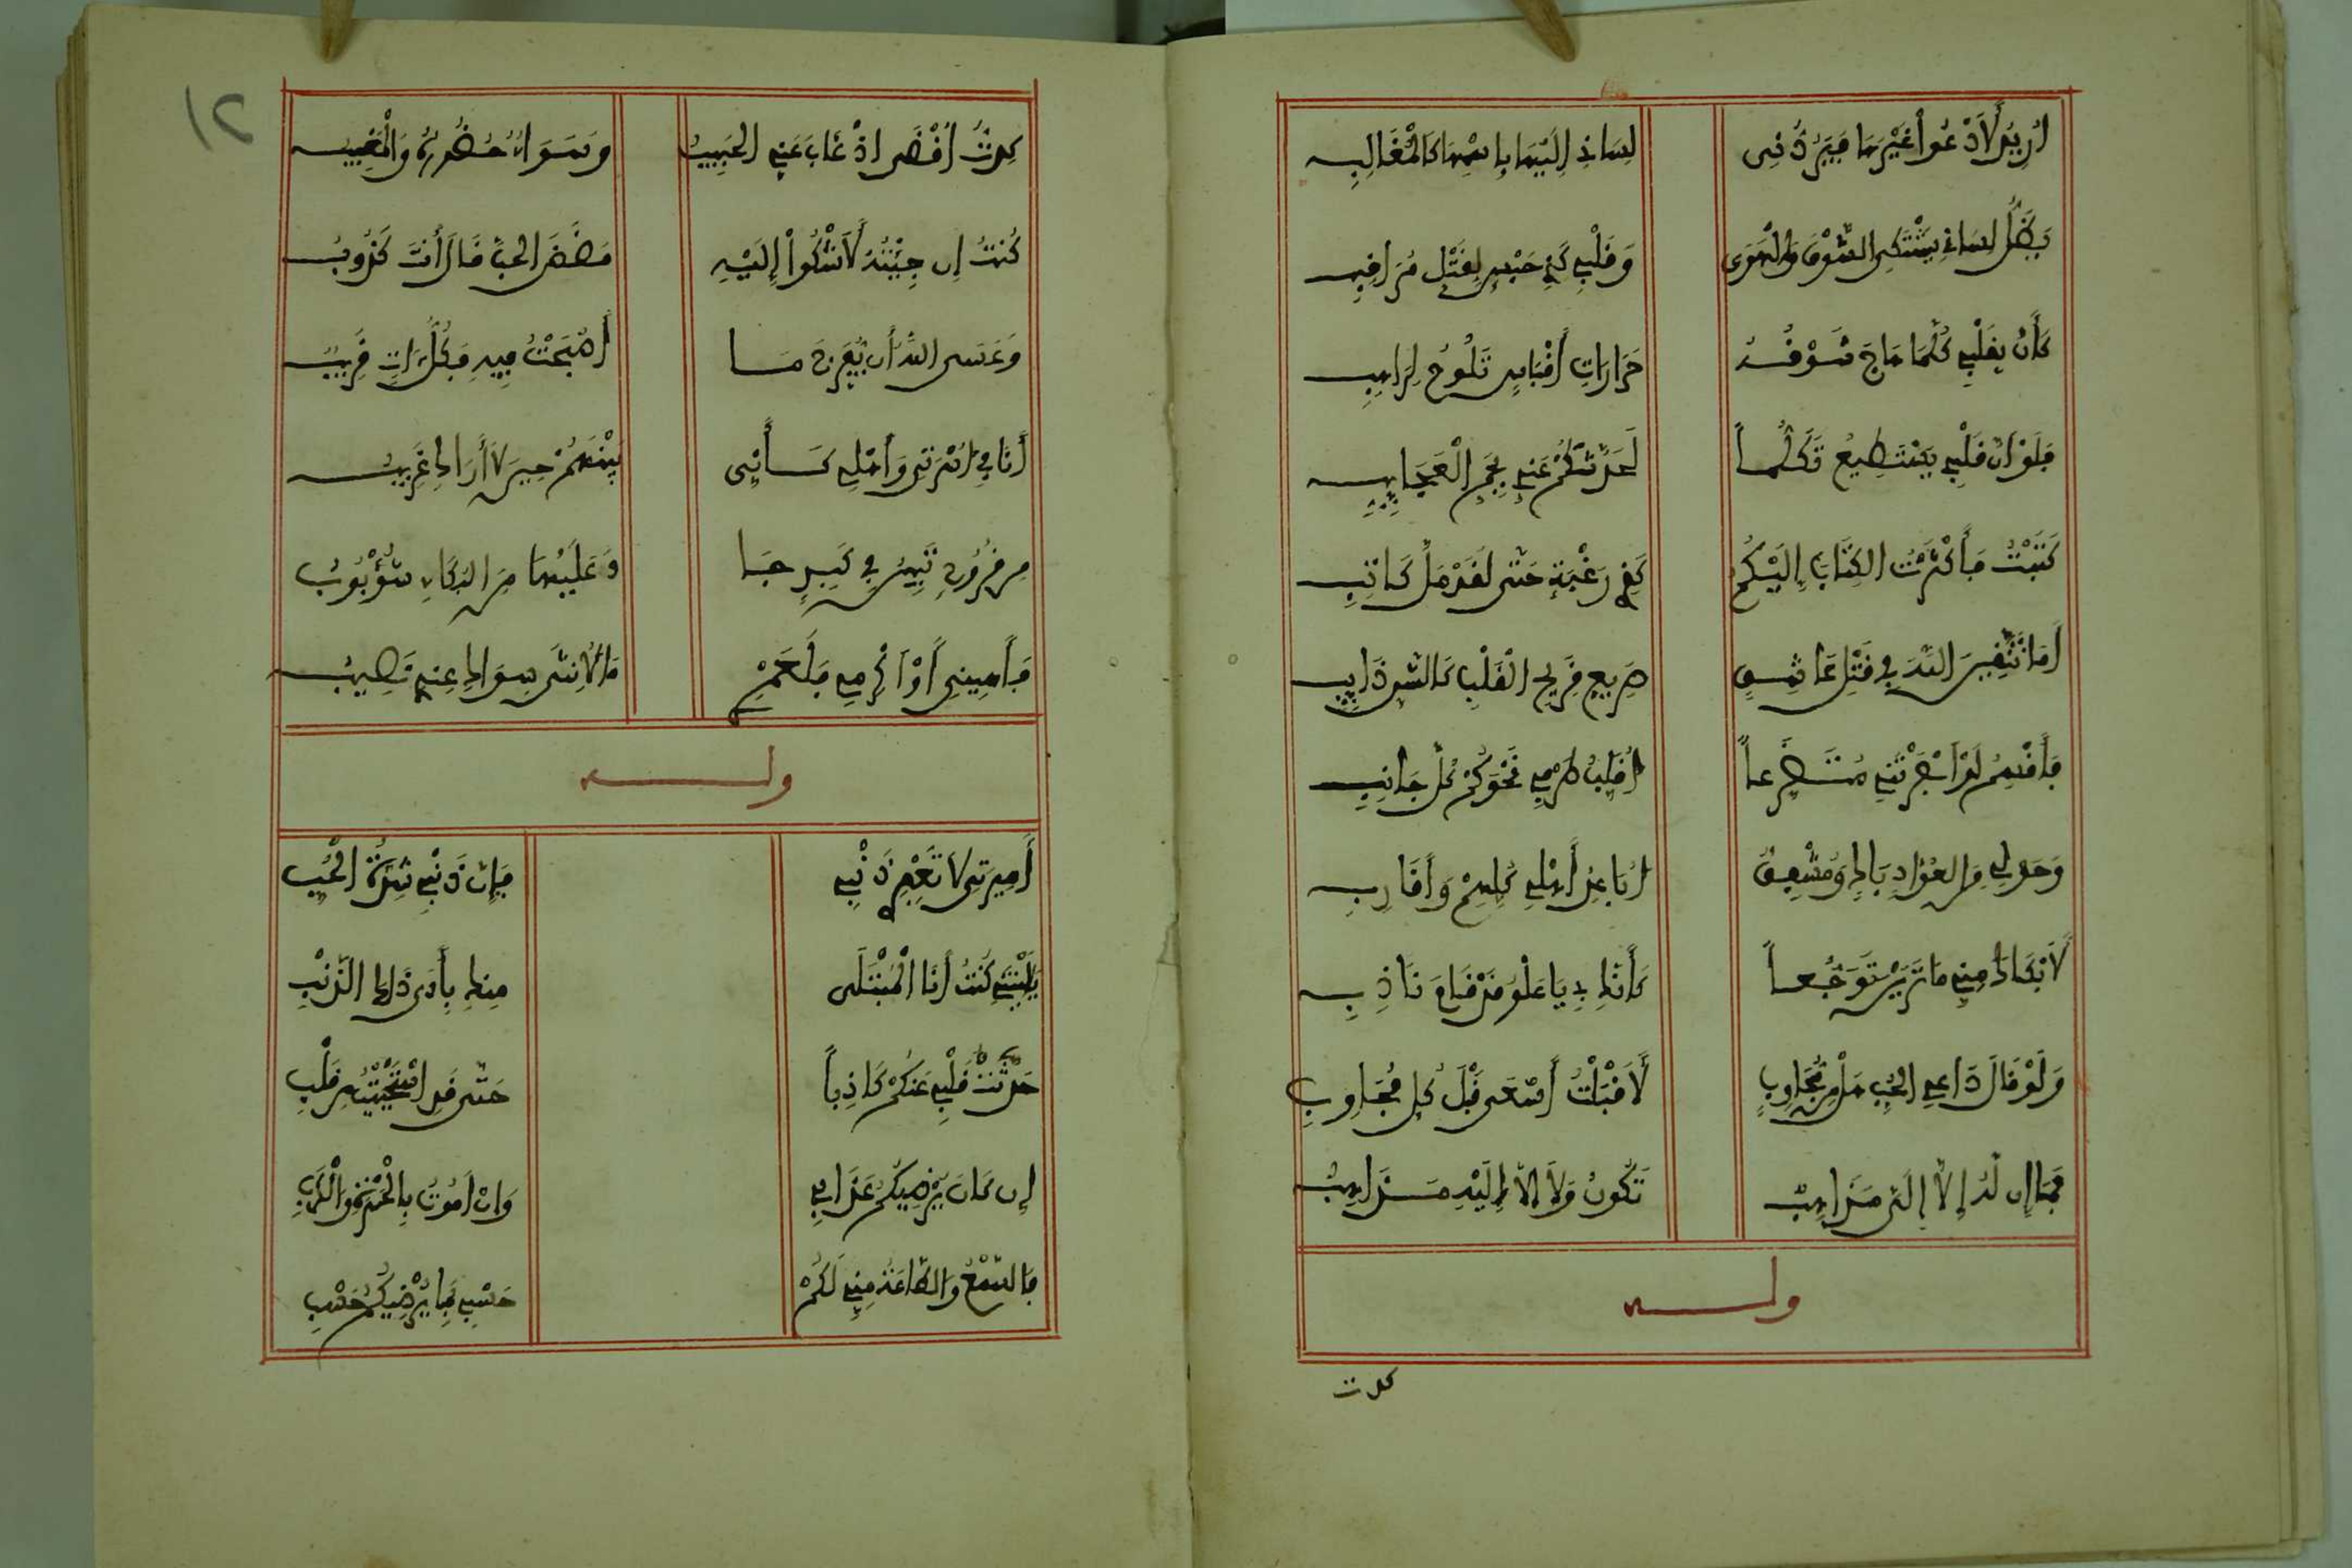 أريد لأدعوا غيرها فيردني لساني إليها باسمها كالمغالب
يظل لساني يشتكي الشوق والهوى وقلبي كذي حبس لقتل مراقب
كأن بقلبي كلما هاج شوقه حرارات أقباس تلوح لراهب
فلو ان قلبي يستطيع تكلما لحدثكم عني بجم العجايب
كتبت فأكثرت الكتاب إليكم كذي رغبة حتى لقد مل كاتب
أما تتقين الله في قتل عاشق صريع قريح القلب كالشن ذايب
فأقسم لو ابصرتني متضرعا أقلب طرفي نحوكم كل جانب
وحولي من العواد باك ومشفق أباعد أهلي كلهم وأقارب
لأبكاك مني ما ترين توجعا كأنك بي يا علو قد قام نادب
ولو قال داعي الحب هل من مجاوب لأقبلت أسعى قبل كل مجاوب
فما إن له إلا إلي مذاهب تكون ولا إلا إليه مذاهب
وله
كدت
١٢
كدت أقضي اذ غاب عني الحبيب وسواء حضوره والمغيب
كنت إن جئته لأشكوا إليه مضض الحب قال أنت كذوب
وعسى الله أن يفرج ما أصبحت فيه فكل آت قريب
أنا في أسرتي وأهلي كأني بينهم حين لا أراك غريب
من قروح تبين في كبد وعليها من البكاء شؤبوب
فأهيني أو اكرمي فلعمري ما لأنثى سواك عندي نصيب
وله
أميرتي لا تغفري ذنبي فإن ذنبي شدة الحب
يليتني كنت أنا المبتلى منك بأدنى ذلك الذنب
حدثت قلبي عنكم كاذبا حتى قد استحييت من قلبي
إن كان يرضيكم عذابي وان أموت بالحسرة والكرب
فالسمع والطاعة مني لكم حسبي بما يرضيكم حسبي